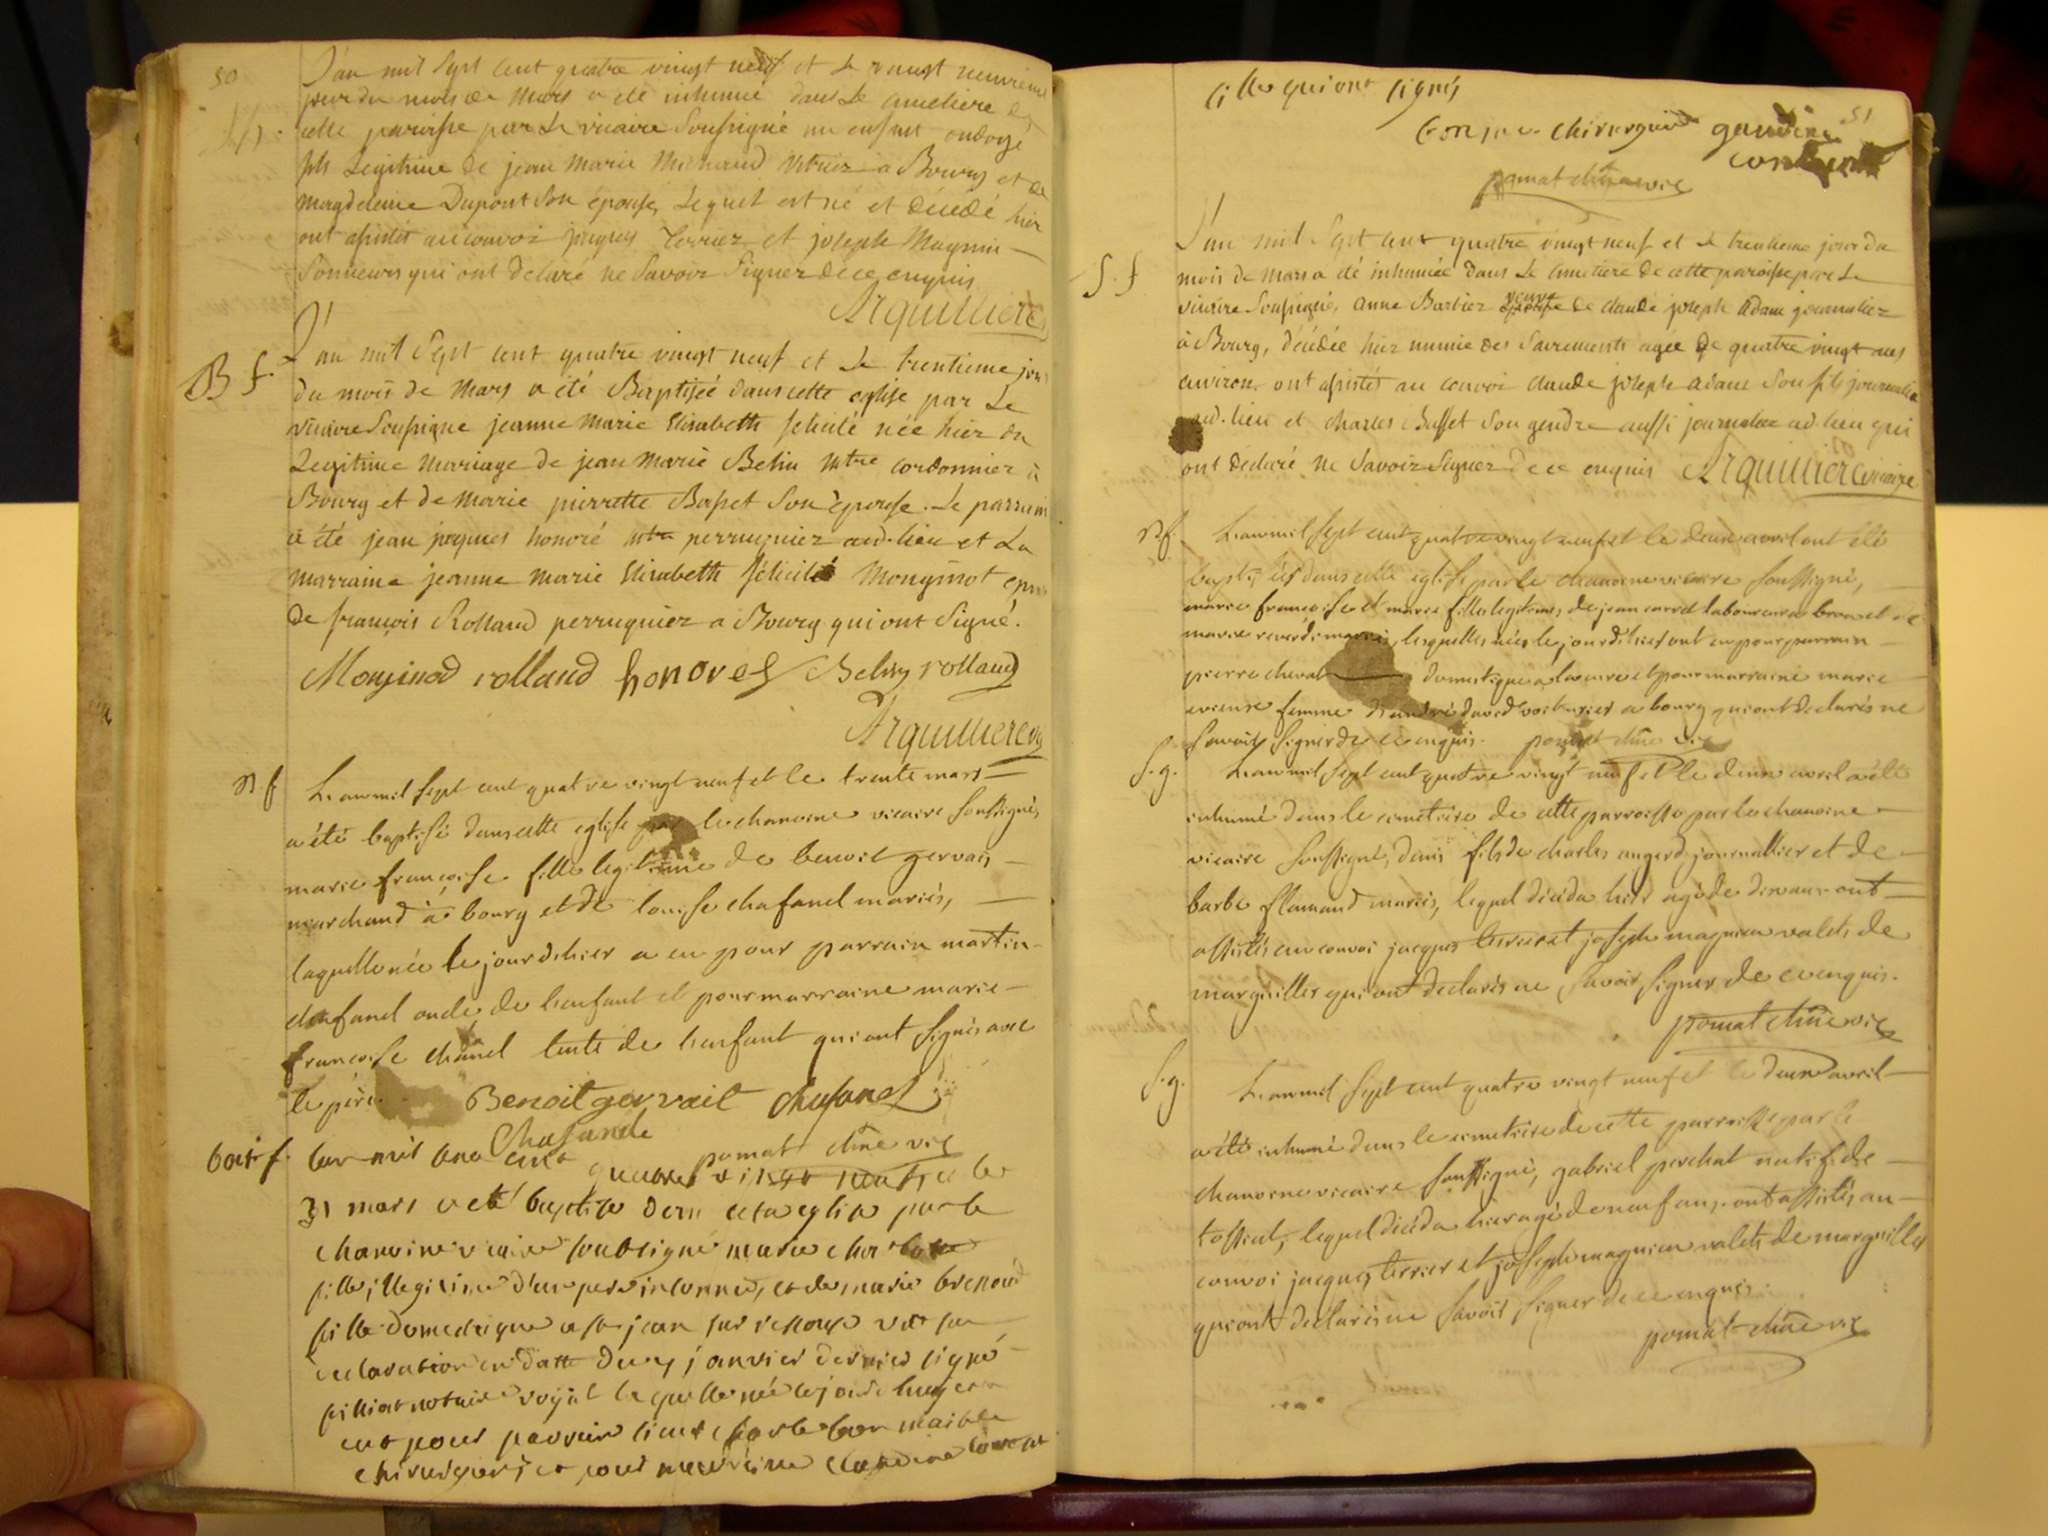 50
L'an mil sept cent quatre vingt neuf et le vingt neuvieme
jour du mois de Mars a été inhumé dans le cimetiere de
cette paroisse par le vicaire soussigné un enfant ondoyé
fils legitime de jean Marie Michaud à Bourg et de
magdeleine Dupont son épouse, lequel est né et décédé hier
ont assisté au convoi jaques Terrier et joseph Magnin
sonneurs qui ont déclaré ne savoir signer de ce enquis
Arquilliere
B f
L'an mil sept cent quatre vingt neuf et le trentieme jour
du mois de Mars a été Baptisée dans cette eglise par le
vicaire soussigné jeanne Marie Elisabeth felicité née hier du
Legitime mariage de jean Marie Belin mtre cordonnier à
Bourg et de Marie pierrette Basset son épouse. Le parrain
a été jean jaques honoré mtre perruquier aud. lieu et la
marraine jeanne Marie Elisabeth félicité Monginot épouse
de françois Rolland perruquier a Bourg qui ont signé.
Monginod rolland honoré Belin rolland
Arquilliere
n. f
L'an mil sept cent quatre vingt neuf et le trente mars
a été baptisé dans cette eglise par le chanoine vicaire soussigné,
marie françoise fille legitime de benoit gervais
marchand à bourg et de louise chafanel mariés,
laquelle née le jour d'hier a eu pour parrain martin
chafanel oncle de l'enfant et pour marraine marie
françoise tante de l'enfant qui ont signés avec
le père. Benoit gervait chafanel
Chafanele
pomat chne vic
bat. f. l'an mil sept cent quatre vingt neuf et le
31 mars a eté baptise dans cete eglise par le
chanoine vicaire soubsigné marie
fille illegitime d'un pere inconnu, et de marie
fille domestique a st jean sur vu sa
declaration en datte du janvier dernier signé
notaire royal laquelle née le jour
eut pour parrain sieur
chirurgien, et pour marraine claudine
51
qui ont signés
chirurgien gaudine
pomat chne vic
S. f
L'an mil sept cent quatre vingt neuf et le trentieme jour du
mois de mars a été inhumée dans le cimetiere de cette paroisse par le
vicaire soussigné, anne Barbier veuve de claude joseph Adam journalier
à Bourg, décédée hier munie des sacrements agée de quatre vingt ans
environ. ont assistés au convoi claude joseph adam son fils journalier
aud. lieu et charles Buffet son gendre aussi journalier aud lieu qui
ont déclaré ne savoir signer de ce enquis Arquilliere vicaire
n. f.
L'an mil sept cent quatre vingt neuf et le deux avril ont été
baptisées dans cette eglise par le chanoine vicaire soussigné,
marie françoise et marie filles legitimes de jean laboureur a et de
marie mariés, lesquelles nées le jour d'hier ont eu pour parrain
pierre domestique a la cure et pour marraine marie
femme d'andré david voiturier a bourg qui ont déclarés ne
savoir signer de ce enquis. pomat chne vic
S. g.
L'an mil sept cent quatre vingt neuf et le deux avril a été
inhumé dans le cimetiere de cette parroisse par le chanoine
vicaire soussigné, denis fils de charles journallier et de
barbe flamand mariés, lequel décéda hier agé de dix ans ont
assistés au convoi jacques terrier et joseph magnien valets de
marguillier qui ont declarés ne savoir signer de ce enquis.
pomat chne vic
S. g.
L'an mil sept cent quatre vingt neuf et le deux avril
a été inhumé dans le cimetiere de cette parroisse par le
chanoine vicaire soussigné, gabriel natif de
tossiat, lequel décéda hier agé de neuf ans. ont assistés au
convoi jacques terrier et joseph magnien valets de marguillier
qui ont déclarés ne savoir signer de ce enquis.
pomat chne vic